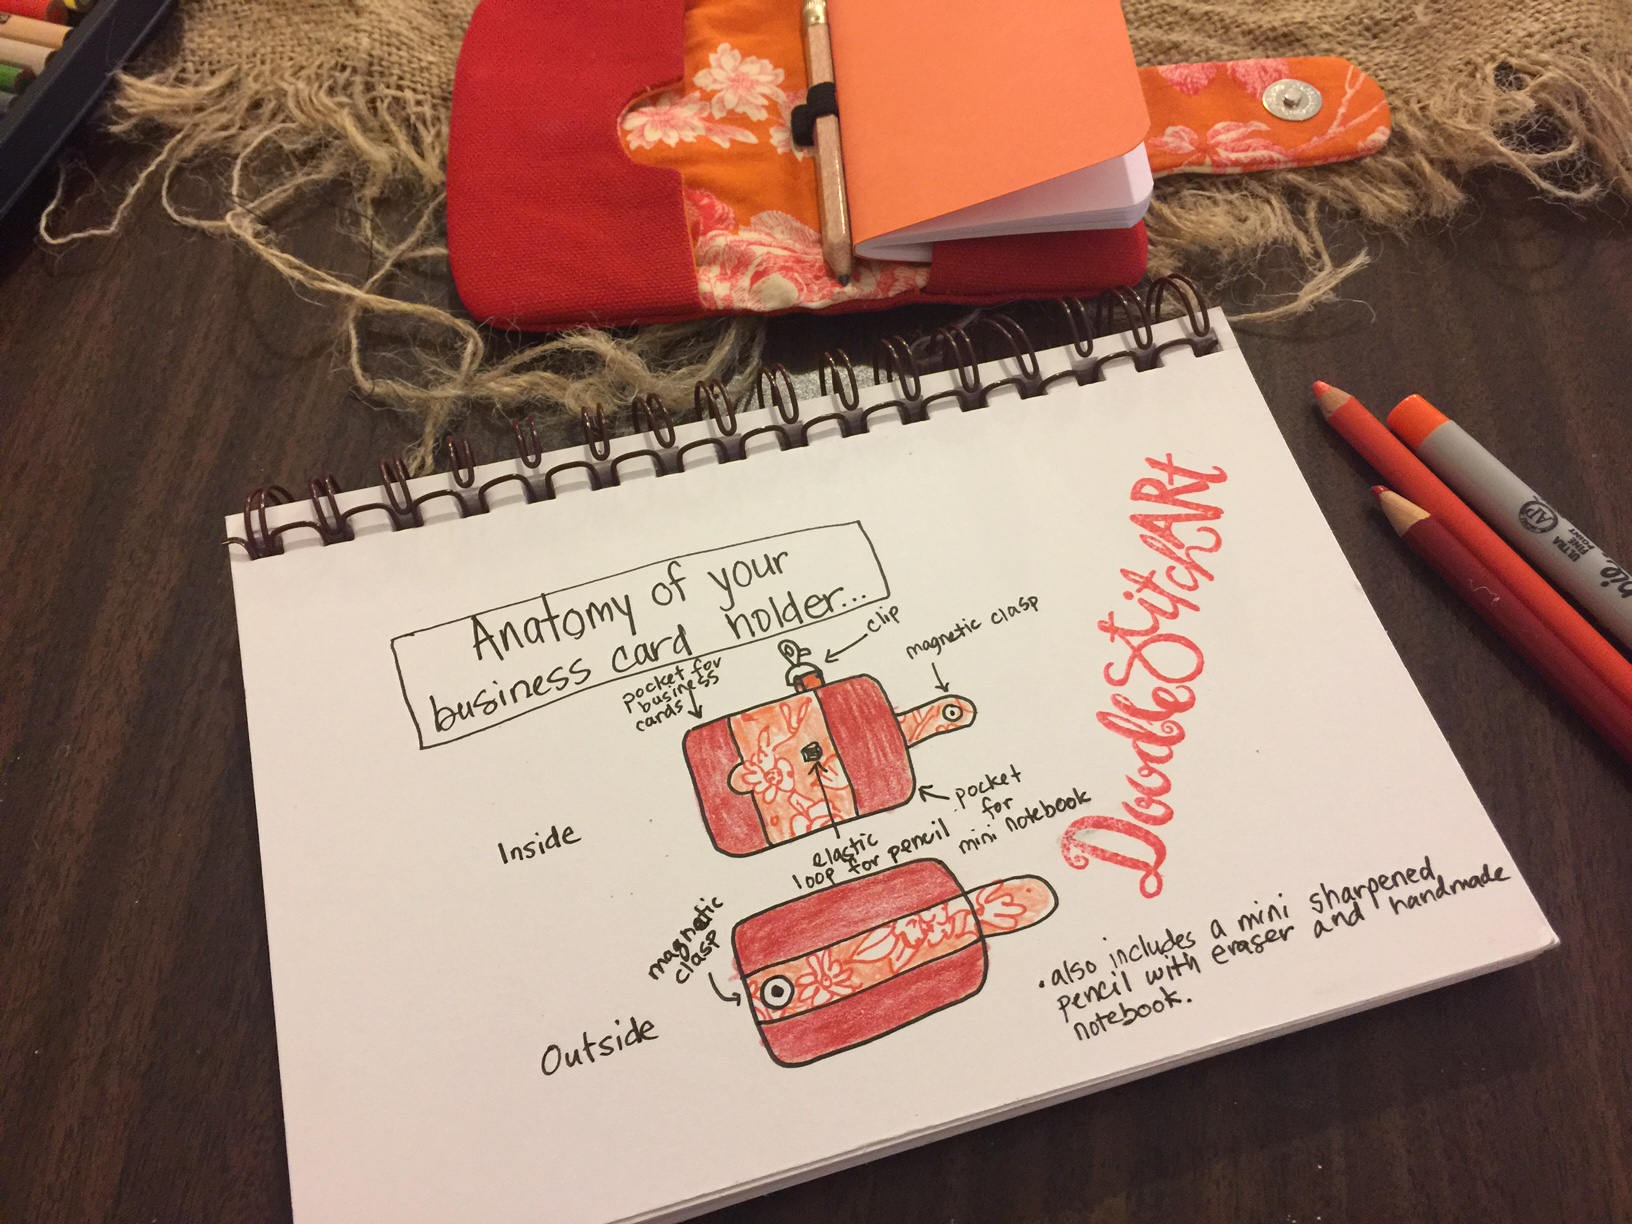 Anatomy of your
business card holder...
clip
magnetic clasp
pocket for
business
cards
Inside
pocket
for
mini notebook
elastic
loop for pencil
magnetic
clasp
Outside
DoodleStitchARt
• also includes a mini sharpened
pencil with eraser and handmade
notebook.
AP
ULTRA
FINE
POINT